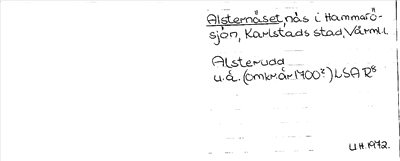 Alsternäset, näs i Hammarö-
sjön, Karlstads stad, Värml.
Alsterudd
u.å. (omkr år 1700?) LSA R8
U.H. 1972.